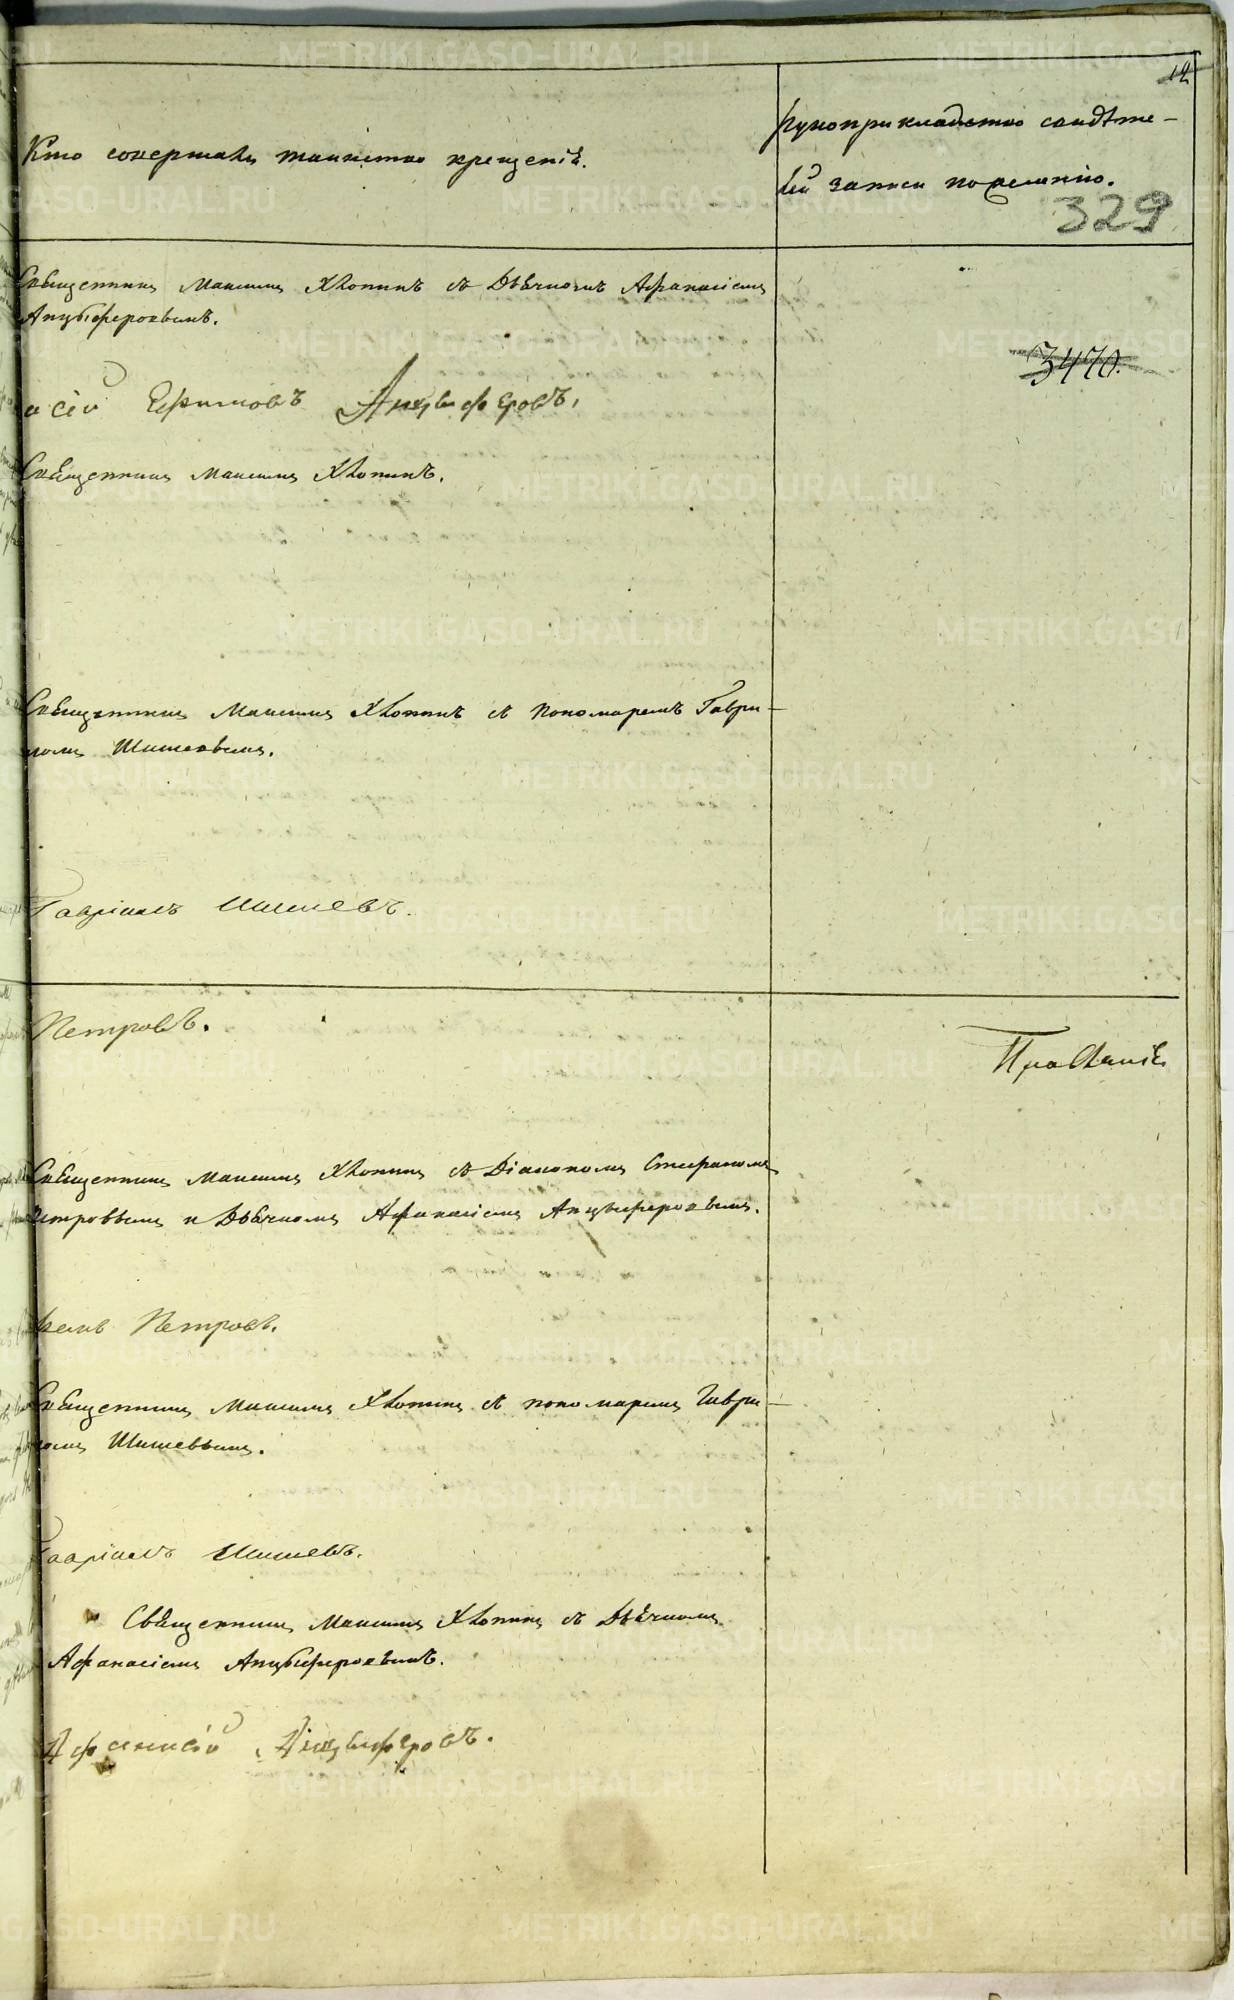 12
Кто совершалъ таинство крещенія.
рукоприкладство свидѣте-
лей записи по желанію.
329
Священникъ Максимъ Хлопинъ съ Дьячкомъ Афанасіемъ
Анцыферовымъ.
3470.
Анцыферовъ.
Священникъ Максимъ Хлопинъ.
Священникъ Максимъ Хлопинъ съ пономаремъ Гаври-
ломъ Шишевымъ.
Гавріилъ Шишевъ.
Петровъ.
Священникъ Максимъ Хлопинъ съ Діакономъ Стефаномъ
Петровымъ и Дьячкомъ Афанасіемъ Анцыферовымъ.
Петровъ.
Священникъ Максимъ Хлопинъ съ пономаремъ Гаври-
ломъ Шишевымъ.
Гавріилъ Шишевъ.
Священникъ Максимъ Хлопинъ съ Дьячкомъ
Афанасіемъ Анцыферовымъ.
Афанасій Анцыферовъ.
METRIKI.GASO-URAL.RU